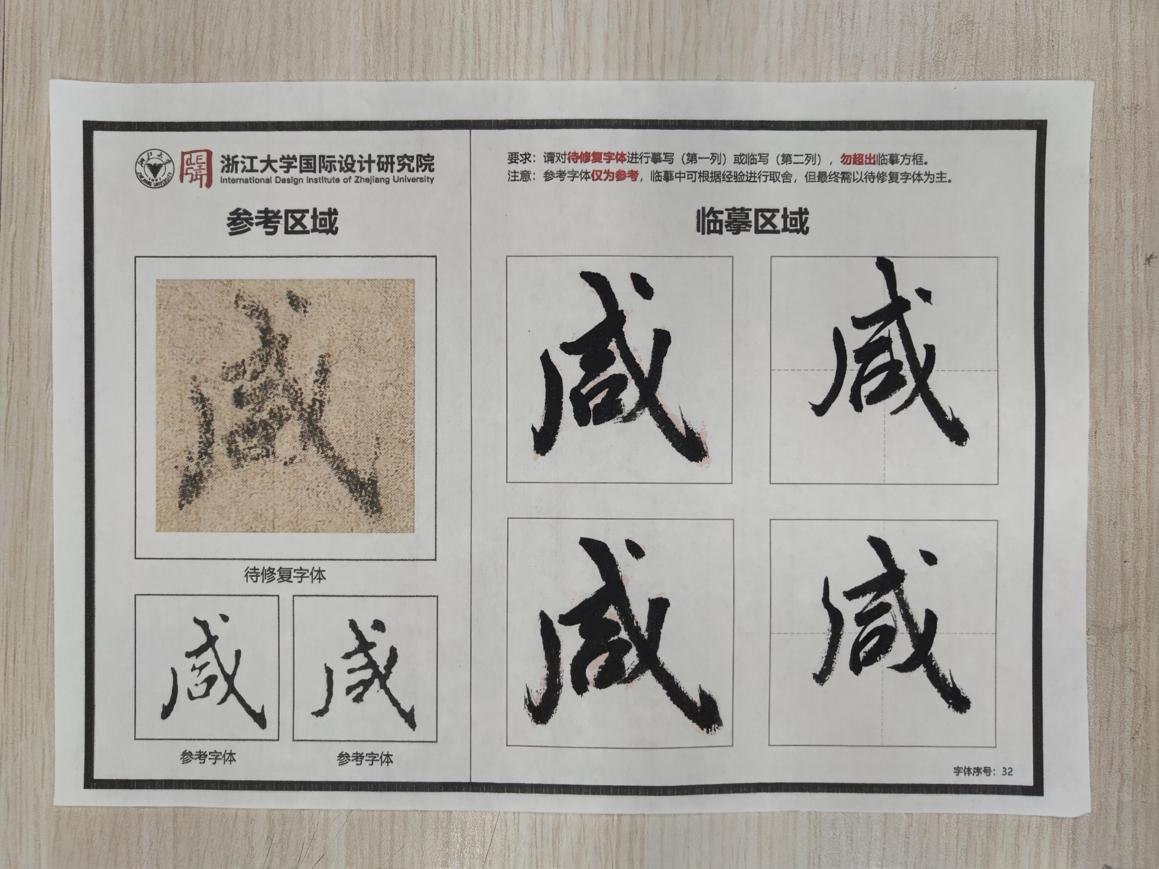 浙江大学国际设计研究院
International Design Institute of Zhejiang University
参考区域
咸
待修复字体
咸 咸
参考字体 参考字体
要求:请对待修复字体进行摹写(第一列)或临写(第二列),勿超出临摹方框。
注意:参考字体仅为参考,临摹中可根据经验进行取舍,但最终需以待修复字体为主。
临摹区域
咸 咸
咸 咸
字体序号:32